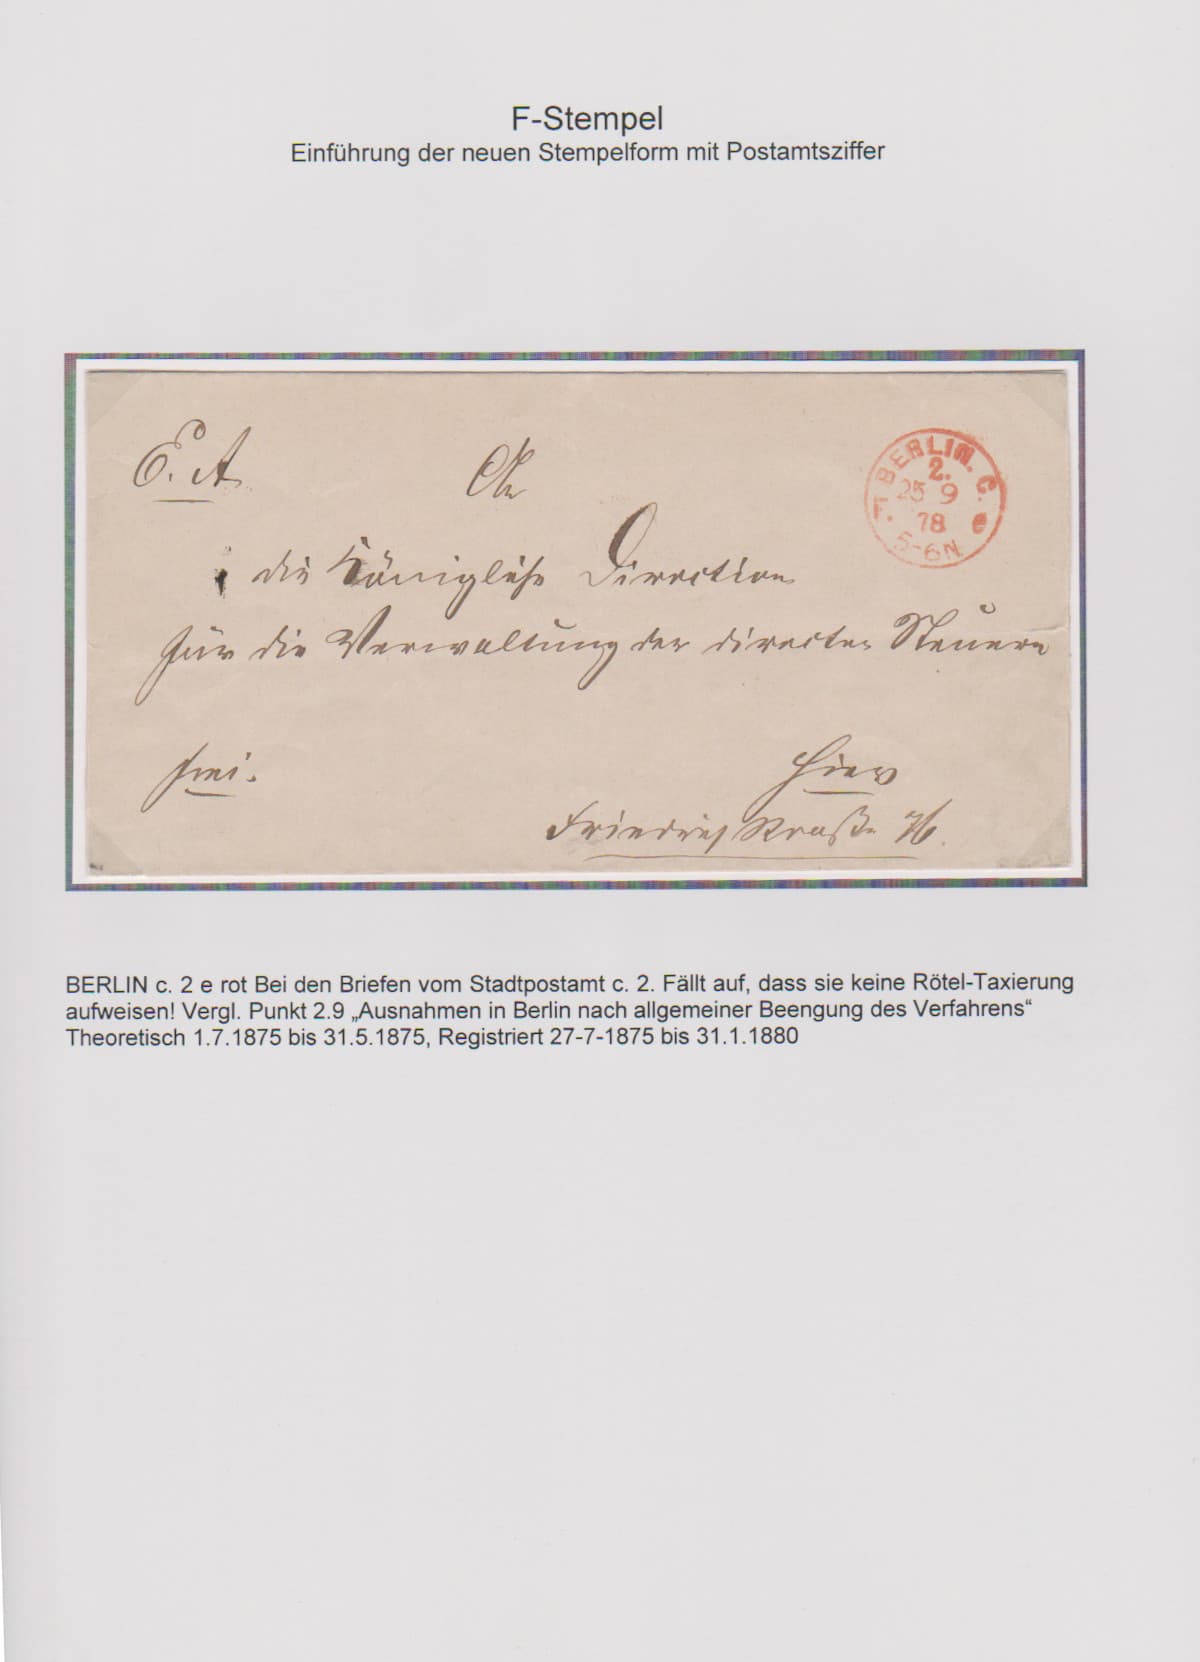 F-Stempel
Einführung der neuen Stempelform mit Postamtsziffer
E. A.
An
BERLIN. C.
2.
25 9
78
5-6N
F. e
die Königliche Direction
für die Verwaltung der directen Steuern
frei.
Hier
Friedrichstraße
BERLIN c. 2 e rot Bei den Briefen vom Stadtpostamt c. 2. Fällt auf, dass sie keine Rötel-Taxierung
aufweisen! Vergl. Punkt 2.9 „Ausnahmen in Berlin nach allgemeiner Beengung des Verfahrens“
Theoretisch 1.7.1875 bis 31.5.1875, Registriert 27-7-1875 bis 31.1.1880